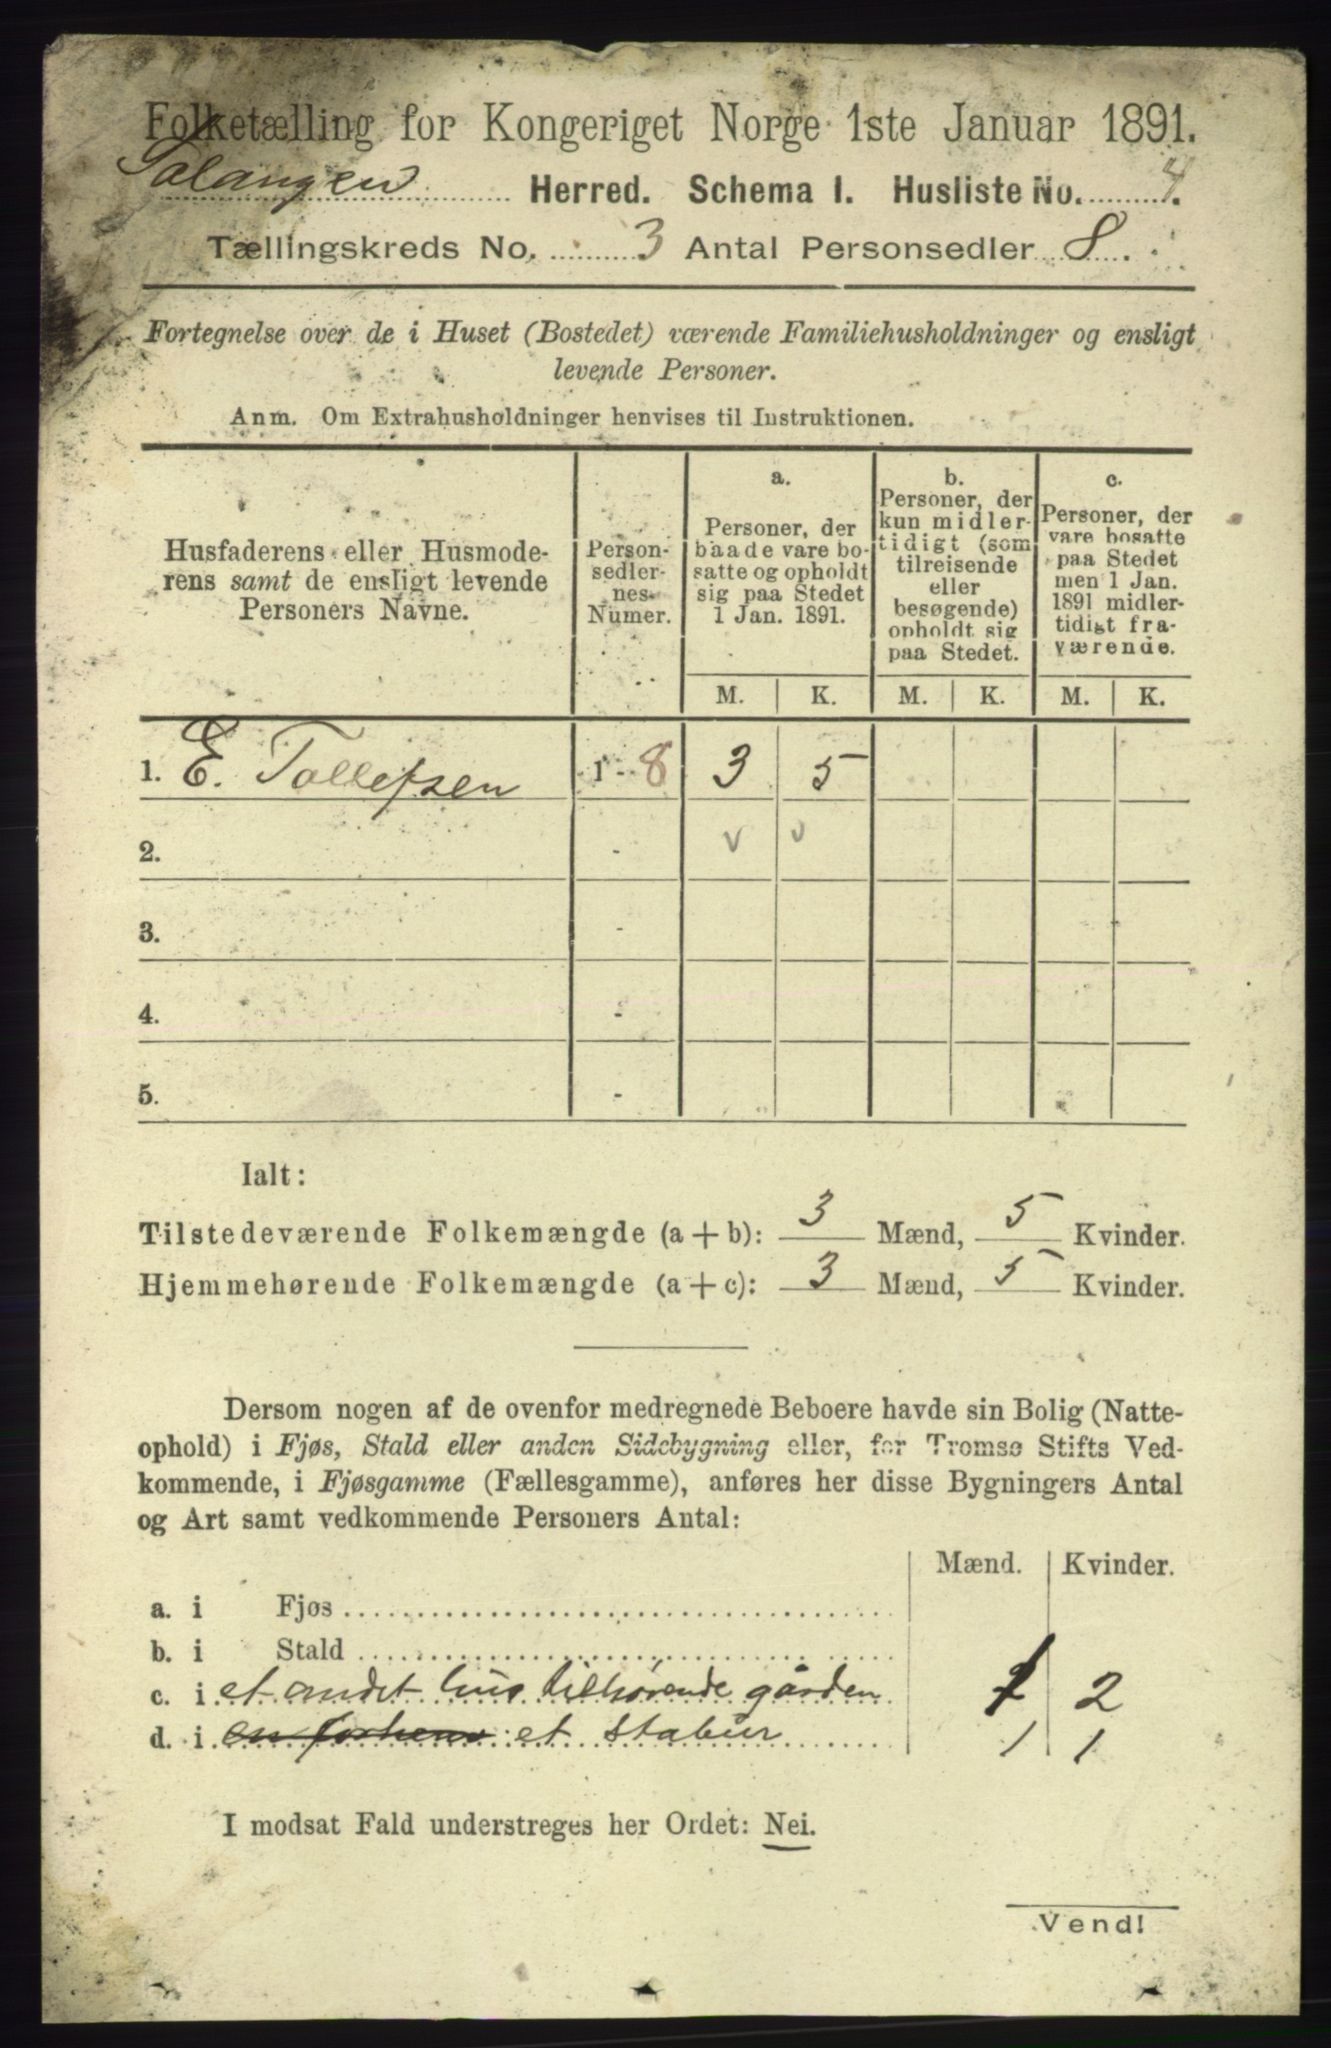 Folketælling for Kongeriget Norge 1ste Januar 1891.
Salangen Herred. Schema I. Husliste No. 4.
Tællingskreds No. 3 Antal Personsedler 8.
Fortegnelse over de i Huset (Bostedet) værende Familiehusholdninger og ensligt
levende Personer.
Anm. Om Extrahusholdninger henvises til Instruktionen.
Husfaderens eller Husmode-
rens samt de ensligt levende
Personers Navne.
Person-
sedler-
nes-
Numer.
a.
Personer, der
baade vare bo-
satte og opholdt
sig paa Stedet
1 Jan. 1891.
b.
Personer, der
kun midler-
tidigt (som
tilreisende
eller
besøgende)
opholdt sig
paa Stedet.
c.
Personer, der
vare bosatte
paa Stedet
men 1 Jan.
1891 midler-
tidigt fra-
værende.
M. K. M. K. M. K.
1. E. Tollefsen 1 - 8 3 5
2. - v v
3. -
4. -
5. -
Ialt:
Tilstedeværende Folkemængde (a + b): 3 Mænd, 5 Kvinder.
Hjemmehørende Folkemængde (a + c): 3 Mænd, 5 Kvinder.
Dersom nogen af de ovenfor medregnede Beboere havde sin Bolig (Natte-
ophold) i Fjøs, Stald eller anden Sidebygning eller, for Tromsø Stifts Ved-
kommende, i Fjøsgamme (Fællesgamme), anføres her disse Bygningers Antal
og Art samt vedkommende Personers Antal:
Mænd. Kvinder.
a. i Fjøs
b. i Stald
c. i et andet hus tilhørende gården 2
d. i et stabur 1 1
I modsat Fald understreges her Ordet: Nei.
Vend!